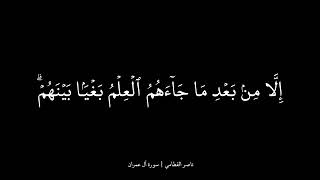 إِلَّا مِنۢ بَعْدِ مَا جَآءَهُمُ ٱلْعِلْمُ بَغْيَۢا بَيْنَهُمْ ۗ
ناصر القطامي | سورة آل عمران